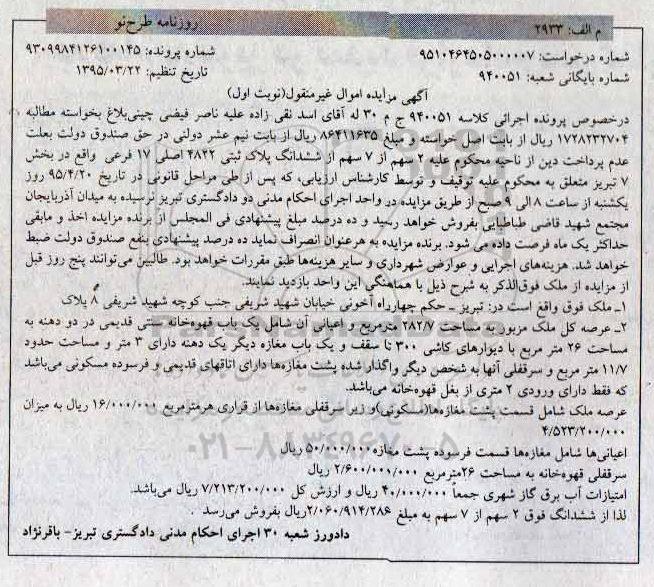 م الف: ۲۹۳۳
روزنامه طرح نو
شماره درخواست: ۹۵۱۰۴۶۴۵۰۵۰۰۰۰۰۷
شماره پرونده: ۹۳۰۹۹۸۴۱۲۶۱۰۰۱۴۵
شماره بایگانی شعبه: ۹۴۰۰۵۱
تاریخ تنظیم: ۱۳۹۵/۰۳/۲۲
آگهی مزایده اموال غیرمنقول(نوبت اول)
درخصوص پرونده اجرائی کلاسه ۹۴۰۰۵۱ ج م ۳۰ له آقای اسد نقی زاده علیه ناصر فیضی چینی‌بلاغ بخواسته مطالبه
۱۷۲۸۲۳۲۷۰۴ ریال از بابت اصل خواسته و مبلغ ۸۶۴۱۱۶۳۵ ریال از بابت نیم عشر دولتی در حق صندوق دولت بعلت
عدم پرداخت دین از ناحیه محکوم علیه ۲ سهم از ۷ سهم از ششدانگ پلاک ثبتی ۴۸۲۲ اصلی ۱۷ فرعی واقع در بخش
۷ تبریز متعلق به محکوم علیه توقیف و توسط کارشناس ارزیابی، که پس از طی مراحل قانونی در تاریخ ۹۵/۴/۲۰ روز
یکشنبه از ساعت ۸ الی ۹ صبح از طریق مزایده در واحد اجرای احکام مدنی دو دادگستری تبریز نرسیده به میدان آذربایجان
مجتمع شهید قاضی طباطبایی بفروش خواهد رسید و ده درصد مبلغ پیشنهادی فی المجلس از برنده مزایده اخذ و مابقی
حداکثر یک ماه فرصت داده می شود. برنده مزایده به هرعنوان انصراف نماید ده درصد پیشنهادی بنفع صندوق دولت ضبط
خواهد شد. هزینه‌های اجرایی و عوارض شهرداری و سایر هزینه‌ها طبق مقررات خواهد بود. طالبین می‌توانند پنج روز قبل
از مزایده از ملک فوق‌الذکر به شرح ذیل با هماهنگی این واحد بازدید نمایند.
۱ـ ملک فوق واقع است در: تبریز ـ حکم چهارراه آخونی خیابان شهید شریفی جنب کوچه شهید شریفی ۸ پلاک
۲ـ عرصه کل ملک مزبور به مساحت ۲۸۲/۷ مترمربع و اعیانی آن شامل یک باب قهوه‌خانه سنتی قدیمی در دو دهنه به
مساحت ۲۶ متر مربع با دیوارهای کاشی ۳۰۰ تا سقف و یک باب مغازه دیگر یک دهنه دارای ۳ متر و مساحت حدود
۱۱/۷ متر مربع و سرقفلی آنها به شخص دیگر واگذار شده پشت مغازه‌ها دارای اتاقهای قدیمی و فرسوده مسکونی می‌باشد
که فقط دارای ورودی ۲ متری از بغل قهوه‌خانه می‌باشد.
عرصه ملک شامل قسمت پشت مغازه‌ها(مسکونی)و زیر سرقفلی مغازه‌ها از قراری هرمترمربع ۱۶/۰۰۰/۰۰۰ ریال به میزان
۴/۵۲۳/۲۰۰/۰۰۰
اعیانی‌ها شامل مغازه‌ها قسمت فرسوده پشت مغازه۵۰/۰۰۰/۰۰۰ ریال
سرقفلی قهوه‌خانه به مساحت ۲۶مترمربع ۲/۶۰۰/۰۰۰/۰۰۰ ریال
امتیازات آب برق گاز شهری جمعاً ۴۰/۰۰۰/۰۰۰ ریال و ارزش کل ۷/۲۱۳/۲۰۰/۰۰۰ ریال می‌باشد.
لذا از ششدانگ فوق ۲ سهم از ۷ سهم به مبلغ ۲/۰۶۰/۹۱۴/۲۸۶ریال بفروش می‌رسد .
دادورز شعبه ۳۰ اجرای احکام مدنی دادگستری تبریز- باقرنژاد
۰۲۱-۸۸۳۴۹۶۷۰-۵